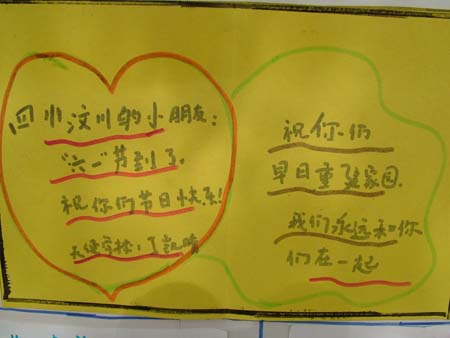 四小汶川的小朋友:
"六一"节到了.
祝你们节日快乐!
天使
祝你们
早日重建家园.
我们永远和你
们在一起